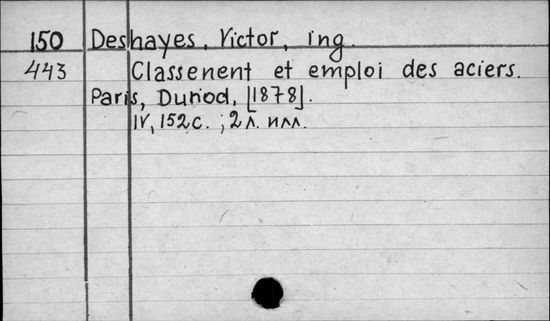 150 Deshayes, Victor, ing.
443 Classenent et emploi des aciers.
Paris, Dunod, [1878].
IV, 152 с. ; 2 л. илл.